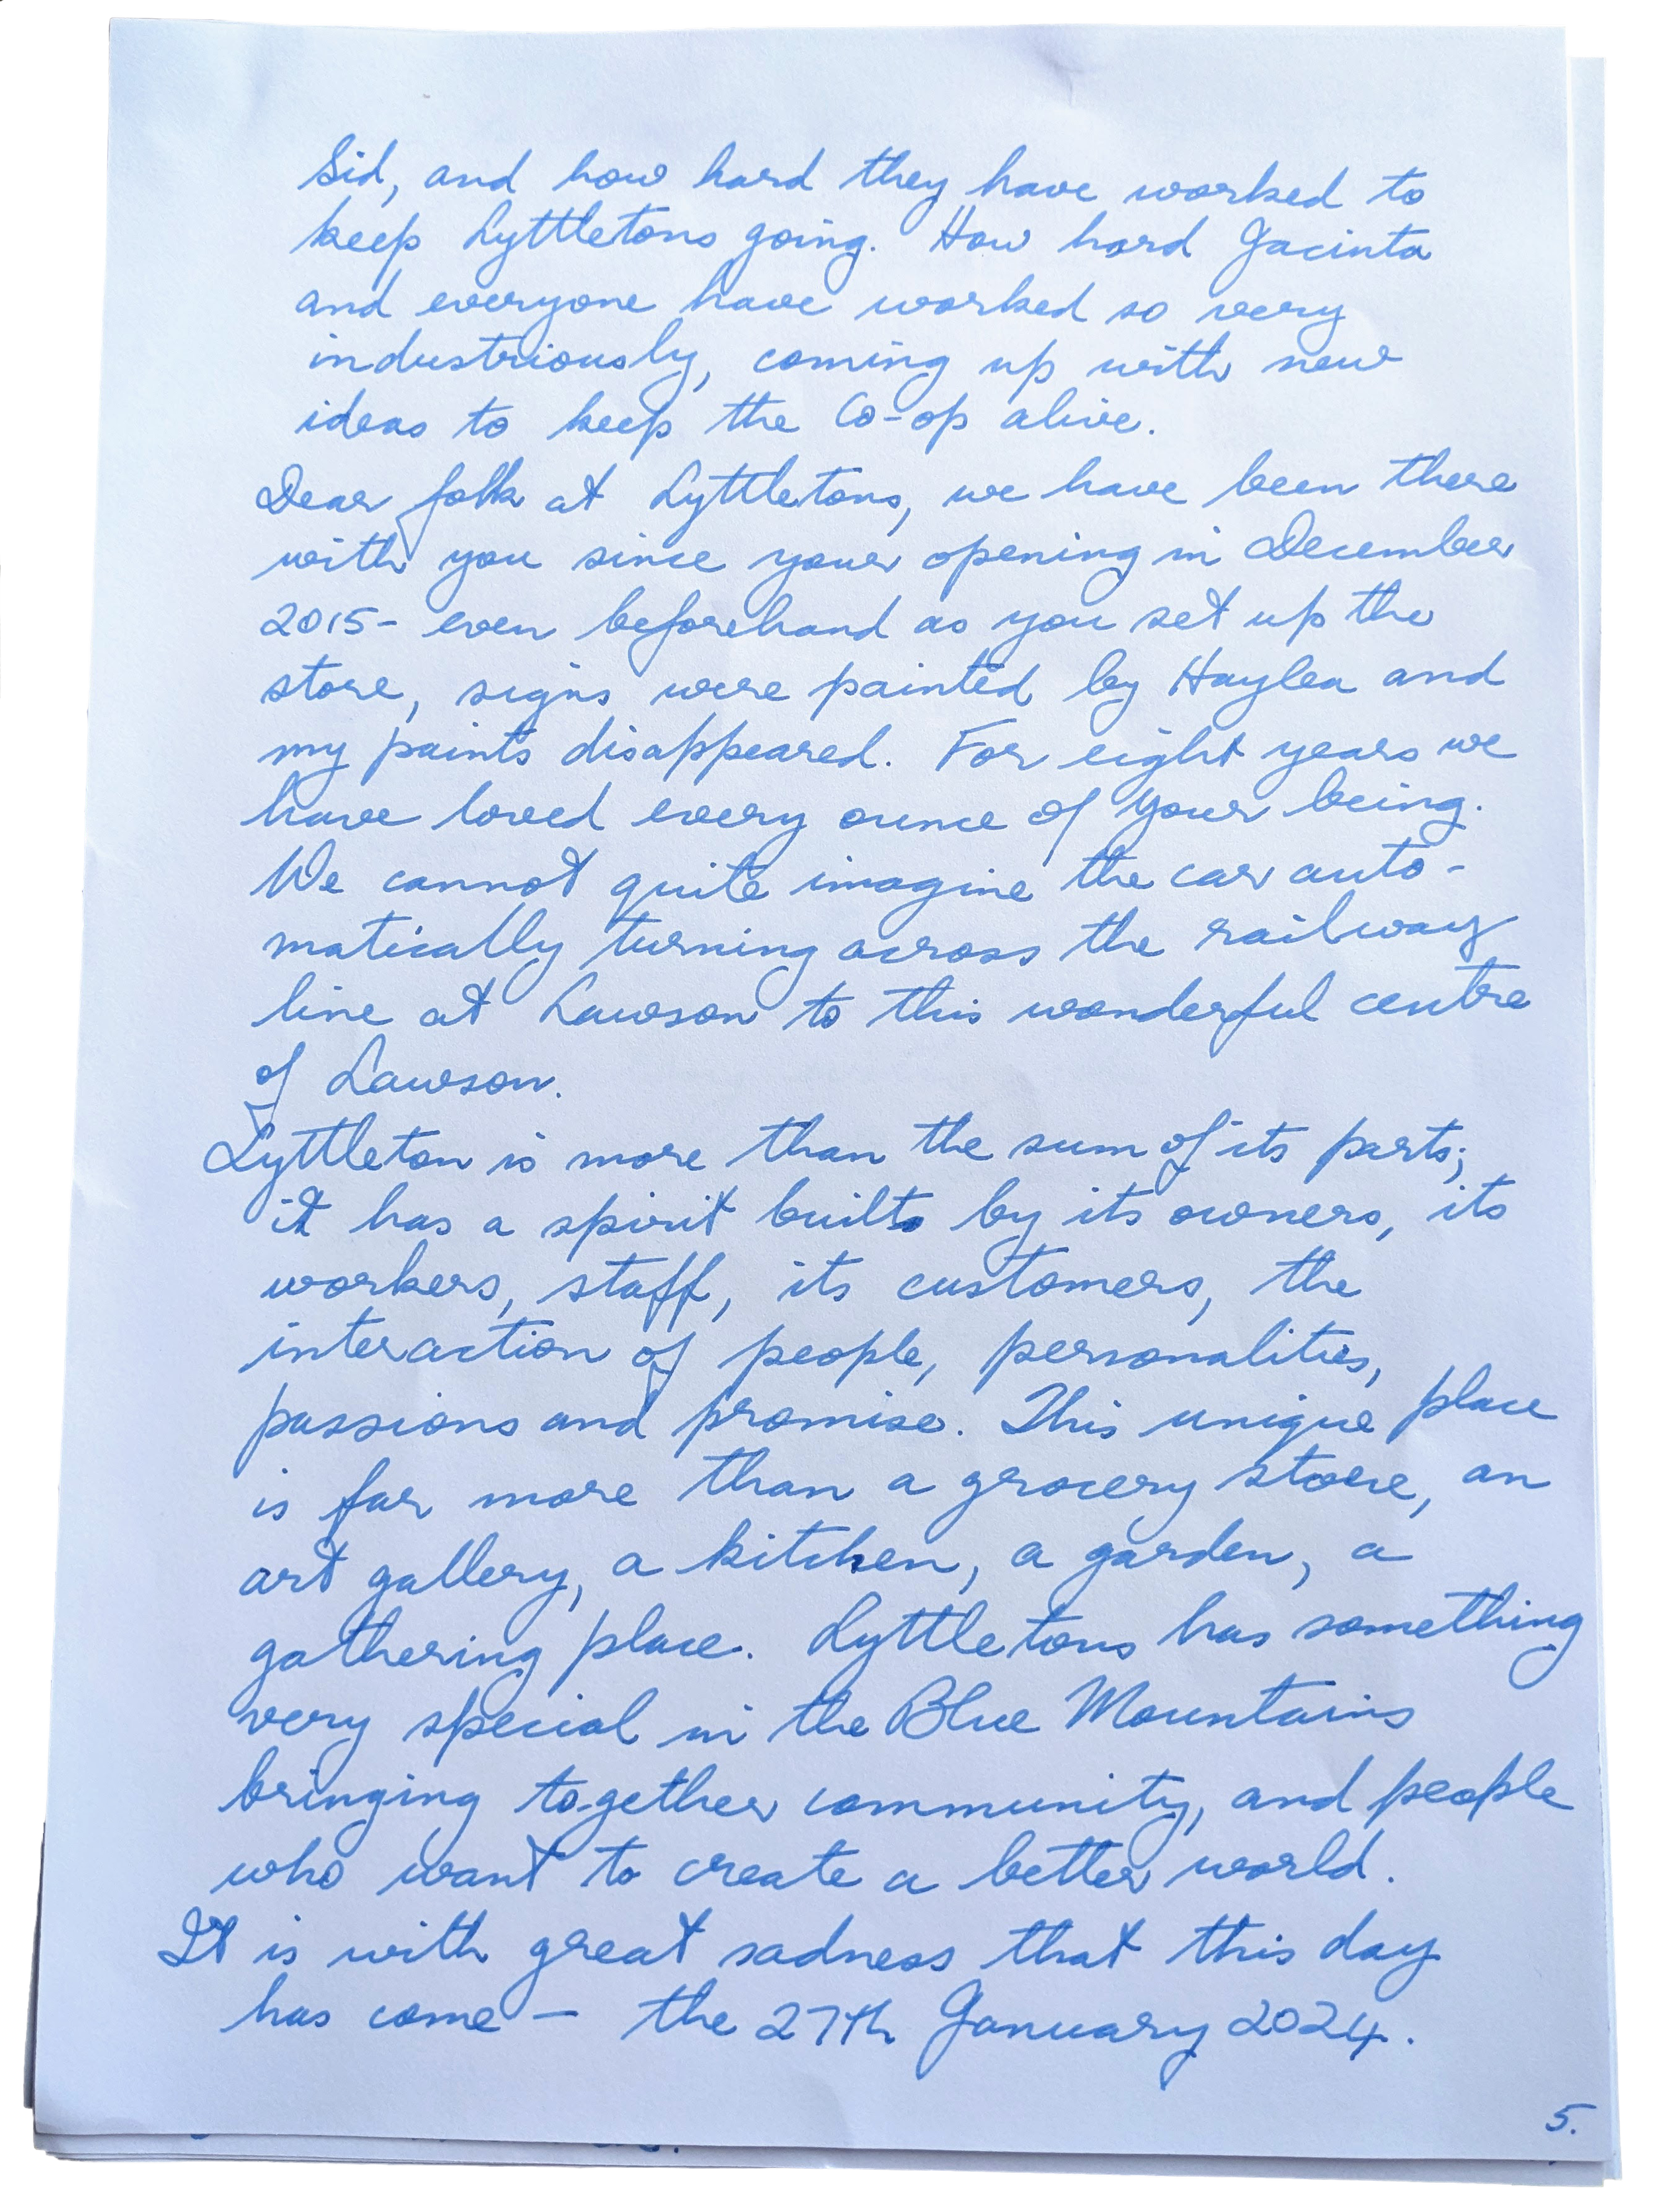 Sid, and how hard they have worked to
keep Lyttletons going. How hard Jacinta
and everyone have worked so very
industriously, coming up with new
ideas to keep the Co-op alive.
Dear folk at Lyttletons, we have been there
with you since your opening in December
2015- even beforehand as you set up the
store, signs were painted by Haylea and
my paints disappeared. For eight years we
have loved every ounce of your being.
We cannot quite imagine the car auto-
matically turning across the railway
line at Lawson to this wonderful centre
of Lawson.
Lyttleton is more than the sum of its parts;
it has a spirit built by its owners, its
workers, staff, its customers, the
interaction of people, personalities,
passions and promise. This unique place
is far more than a grocery store, an
art gallery, a kitchen, a garden, a
gathering place. Lyttletons has something
very special in the Blue Mountains
bringing together community, and people
who want to create a better world.
It is with great sadness that this day
has come - the 27th January 2024.
5.